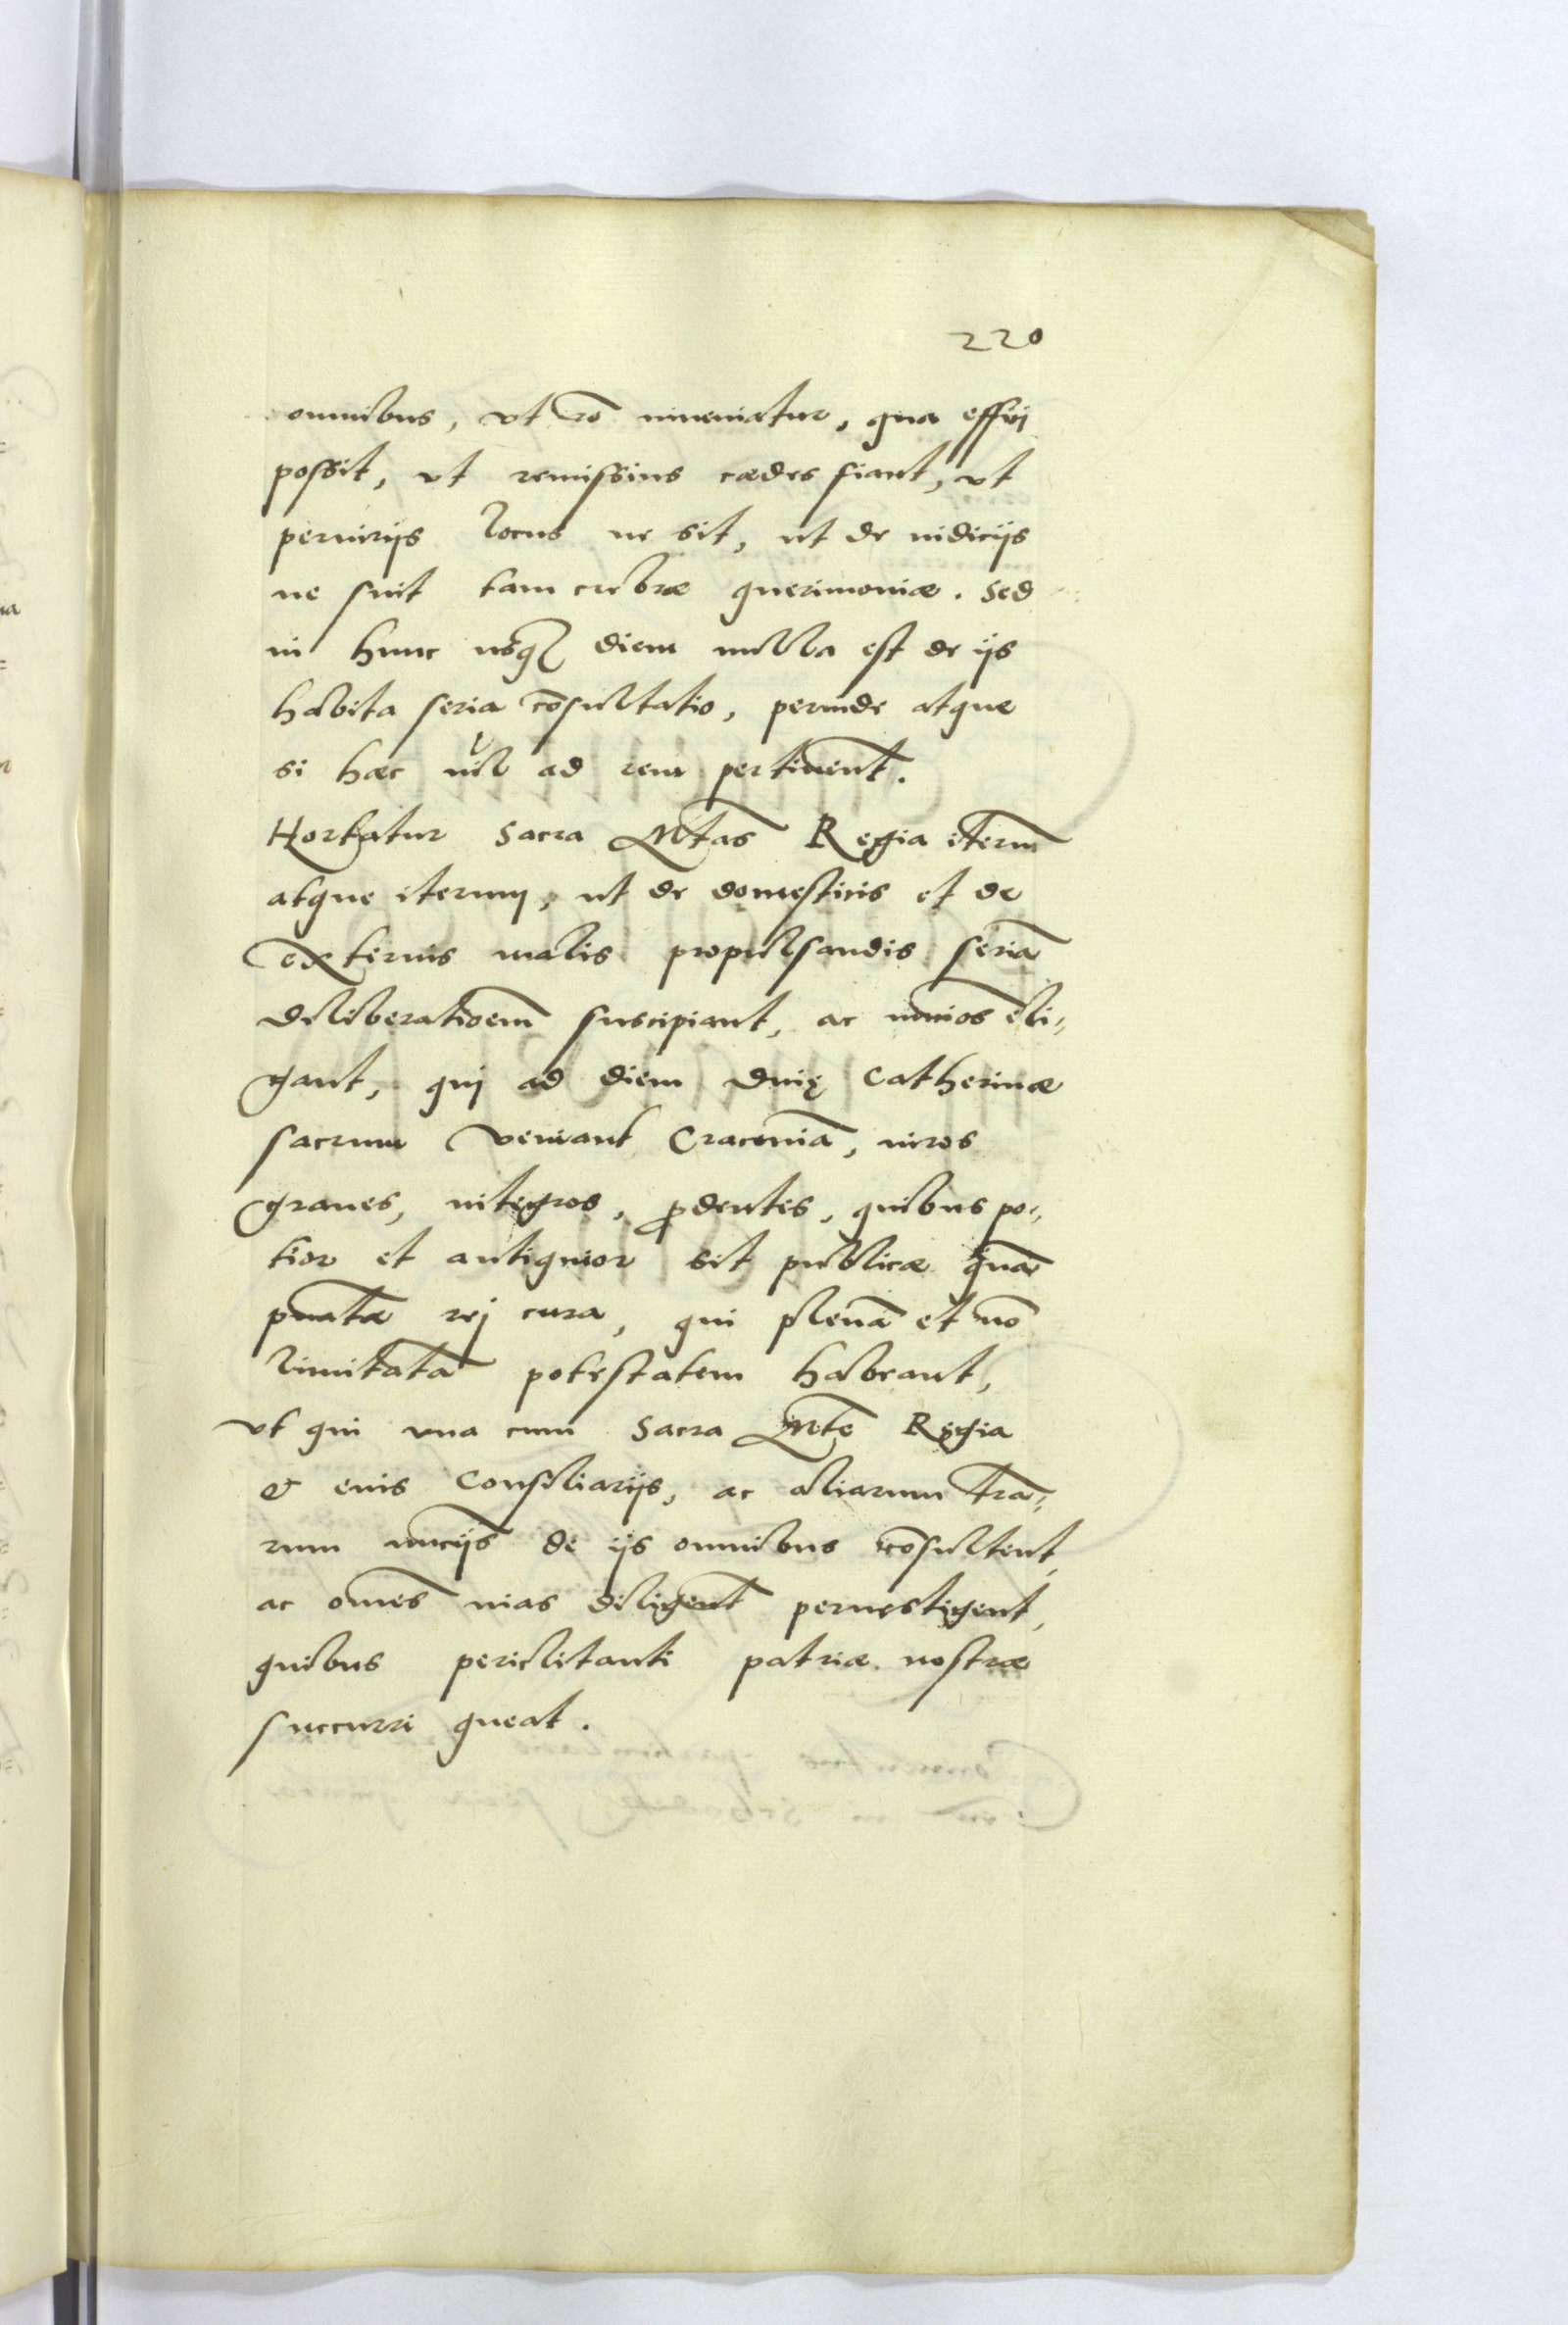 220
omnibus, vt rō inueniatur, qua effici
possit, vt remissius cædes fiant, vt
periurijs locus ne sit, ut de iudicijs
ne sint tam crebræ querimoniæ. Sed
in hunc usq₃ diem nulla est de ijs
habita seria cōsultatio, perinde atque
si hæc nil ad rem pertinent.
Hortatur Sacra Mtas Regia iterū
atque iterum, ut de domesticis et de
externis malis propulsandis seriā
deliberationem suscipiant, ac nuncios eli=
gant, qui ad diem Diuę Catherinæ
sacrum veniant Cracouiā, uiros
graues, integros, prudentes, quibus po=
tior et antiquior sit publicæ quā
priuatæ rej cura, qui plenā et nō
limitatā potestatem habeant,
vt qui vna cum Sacra Mte Regia
& eius Consiliarijs, ac aliarum trā=
rum nuncijs de ijs omnibus cōsultent,
ac omēs uias diligent peruestigent,
quibus periclitanti patriæ nostræ
succurri queat.